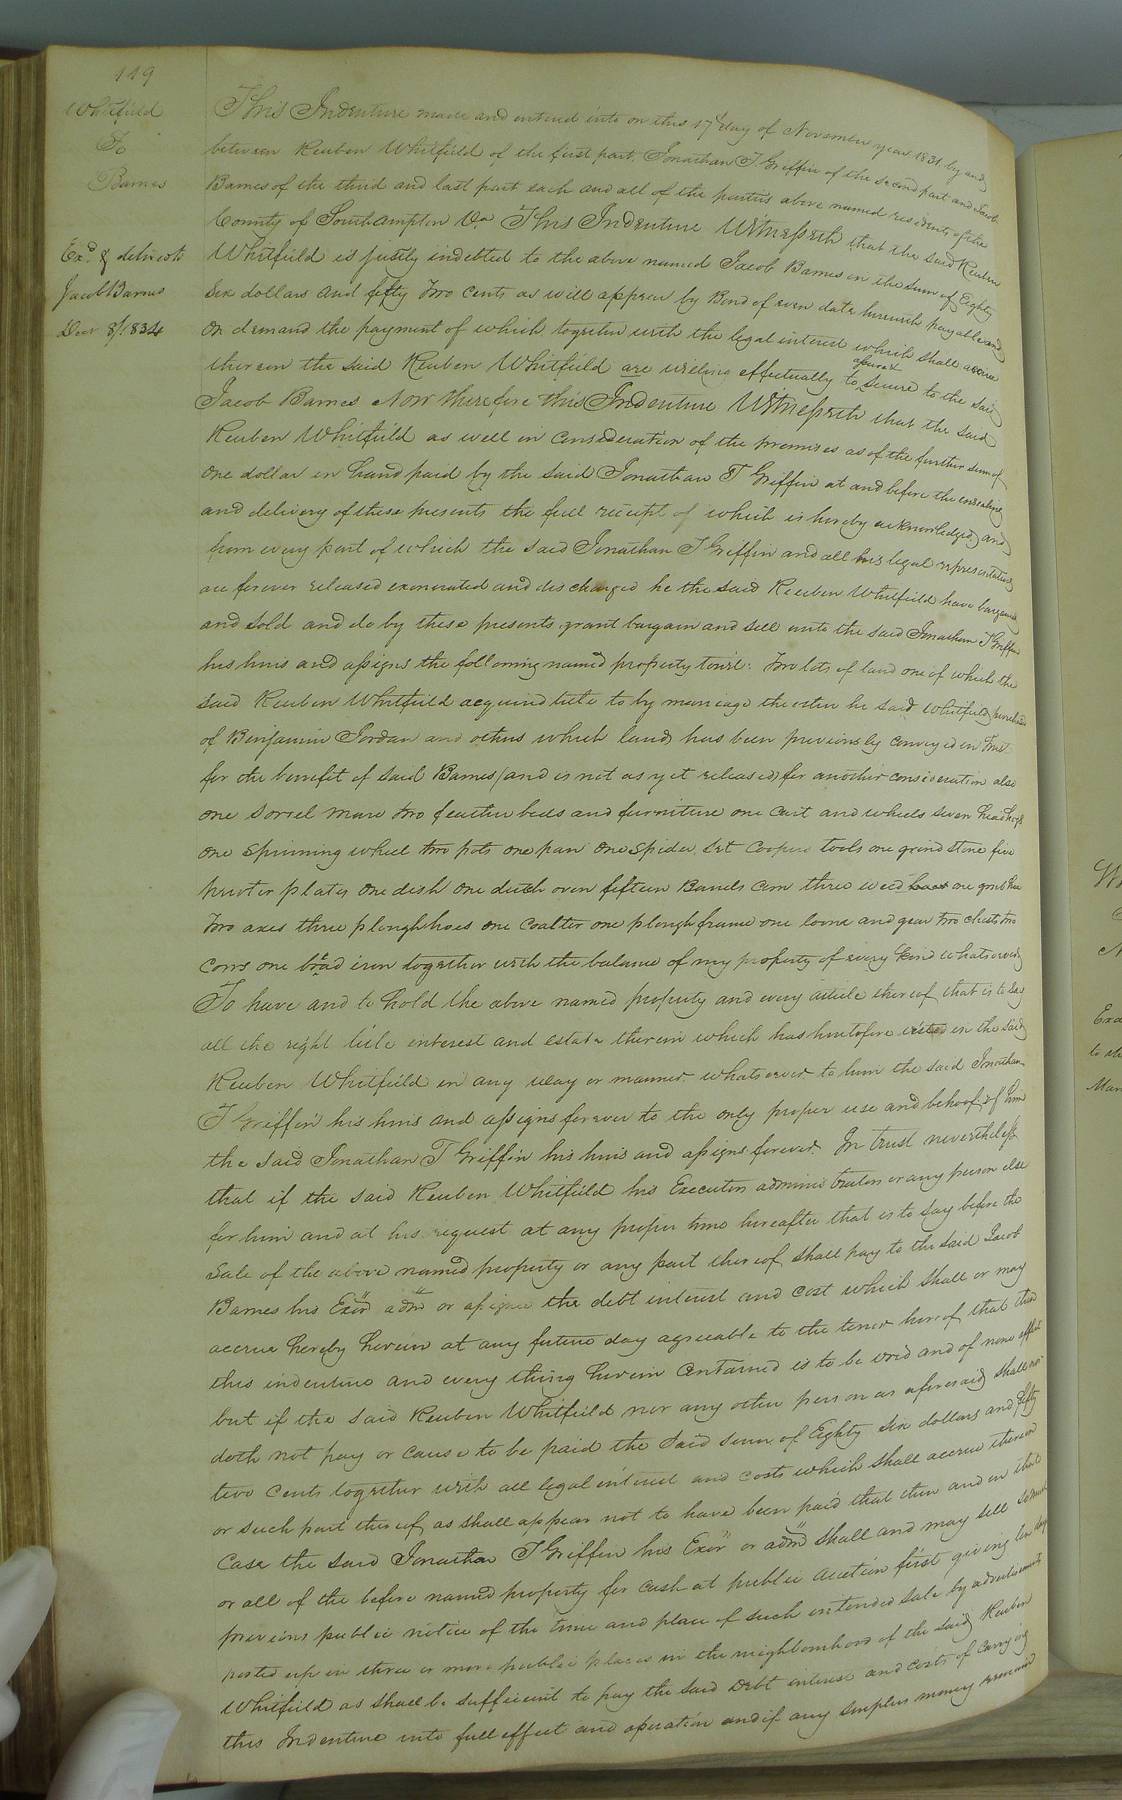 119
Whitfield
To
Barnes
Exd. & delivered to
Jacob Barnes
Decr 8th 1834
This Indenture made and entered into on this 17th day of November year 1831, by and
between Reuben Whitfield of the first part, Jonathan T Griffin of the second part and Jacob
Barnes of the third and last part each and all of the parties above named residents of the
County of Southampton Va This Indenture Witnesseth that the said Reuben
Whitfield is justly indebted to the above named Jacob Barnes in the sum of Eighty
Six dollars and fifty two cents as will appear by Bond of even date herewith payable and
on demand the payment of which together with the legal interest which shall accrue
thereon the said Reuben Whitfield are willing effectually to secure to the said
Jacob Barnes Now therefore this Indenture Witnesseth that the said
Reuben Whitfield as well in consideration of the premises as of the further sum of
One dollar in hand paid by the said Jonathan T Griffin at and before the ensealing
and delivery of these presents the full receipt of which is hereby acknowledged and
from every part of which the said Jonathan T Griffin and all his legal representatives
are forever released exonerated and discharged he the said Reuben Whitfield have bargained
and sold and do by these presents grant bargain and sell unto the said Jonathan T Griffin
his heirs and assigns the following named property towit: Two lots of land one of which the
said Reuben Whitfield acquired title to by marriage the other he said Whitfield purchased
of Benjamin Jordan and others which land has been previously conveyed in Trust
for the benefit of said Barnes (and is not as yet released) for another consideration also
one sorrel mare two feather beds and furniture one cart and wheels seven head hogs
one spinning wheel two pots one pan one spider set coopers tools one grind stone five
pewter plates one dish one dutch oven fifteen Barrels corn three weed one grub hoe
two axes three plough hoes one coalter one plough frame one loome and gear two chests two
cows one broad iron together with the balance of my property of every kind whatsoever
To have and to hold the above named property and every article thereof that is to say
all the right title interest and estate therein which has heretofore vested in the said
Reuben Whitfield in any way or manner whatsoever to him the said Jonathan
T Griffin his heirs and assigns forever to the only proper use and behoof of him
the said Jonathan T Griffin his heirs and assigns forever. In trust nevertheless
that if the said Reuben Whitfield his Executors administrators or any person else
for him and at his request at any proper time hereafter that is to say before the
Sale of the above named property or any part thereof shall pay to the said Jacob
Barnes his Exors admrs or assigns the debt interest and cost which shall or may
accrue hereby herein at any future day agreeable to the tenor hereof that then
this indenture and every thing herein contained is to be void and of none effect
but if the said Reuben Whitfield nor any other person as aforesaid shall nor
doth not pay or cause to be paid the said sum of Eighty six dollars and fifty
two cents together with all legal interest and costs which shall accrue thereon
or such part thereof as shall appear not to have been paid that then and in that
case the said Jonathan T Griffin his Exors or admrs shall and may sell so much
or all of the before named property for cash at public auction first giving ten days
previous public notice of the time and place of such intended sale by advertisements
posted up in three or more public places in the neighbourhood of the said Reuben
Whitfield as shall be sufficient to pay the said Debt interest and costs of carrying
this Indenture into full effect and operation and if any surplus money remained